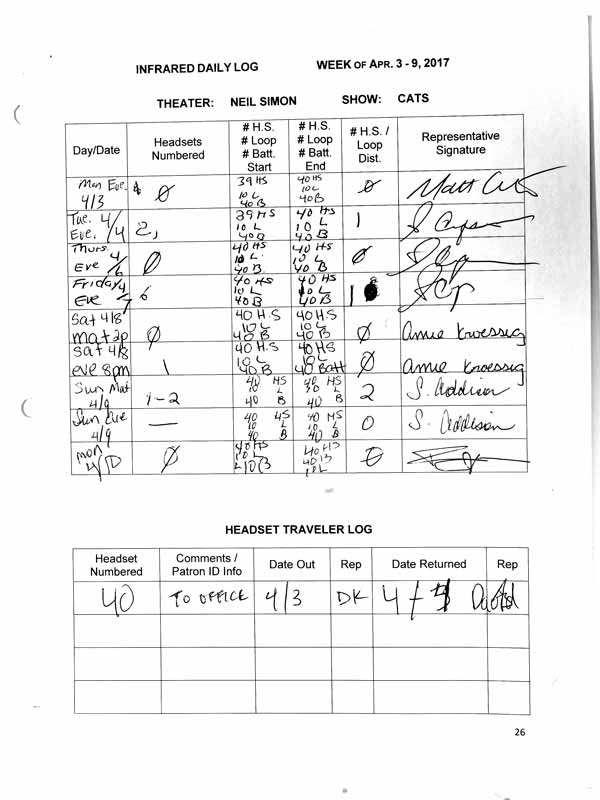 INFRARED DAILY LOG WEEK OF APR. 3 - 9, 2017
THEATER: NEIL SIMON SHOW: CATS
Day/Date Headsets Numbered # H.S. # Loop # Batt. Start # H.S. # Loop # Batt. End # H.S. / Loop Dist. Representative Signature
Mon Eve. 4/3 Ø 39 HS 10 L 40 B 40 HS 10 L 40 B Ø Matt
Tue. 4/4 Eve. 2, 39 HS 10 L 40 B 40 HS 10 L 40 B 1
Thurs. 4/6 Eve Ø 40 HS 10 L 40 B 40 HS 10 L 40 B Ø
Friday 4/7 Eve 6 40 HS 10 L 40 B 40 HS 10 L 40 B 1
Sat 4/8 mat 2p Ø 40 H.S 10 L 40 B 40 H.S. 10 L 40 B Ø Amie Kroessig
Sat 4/8 eve 8pm 1 40 H.S 10 L 40 B 40 HS 10 L 40 Batt Ø Amie Kroessig
Sun Mat 4/9 1-2 40 HS 10 L 40 B 40 HS 10 L 40 B 2 S. Addison
Sun Eve 4/9 — 40 HS 10 L 40 B 40 HS 10 L 40 B 0 S. Addison
mon 4/10 Ø 40 HS 10 L 40 B 40 HS 40 B 10 L 0
HEADSET TRAVELER LOG
Headset Numbered Comments / Patron ID Info Date Out Rep Date Returned Rep
40 TO OFFICE 4/3 DK 4/
26